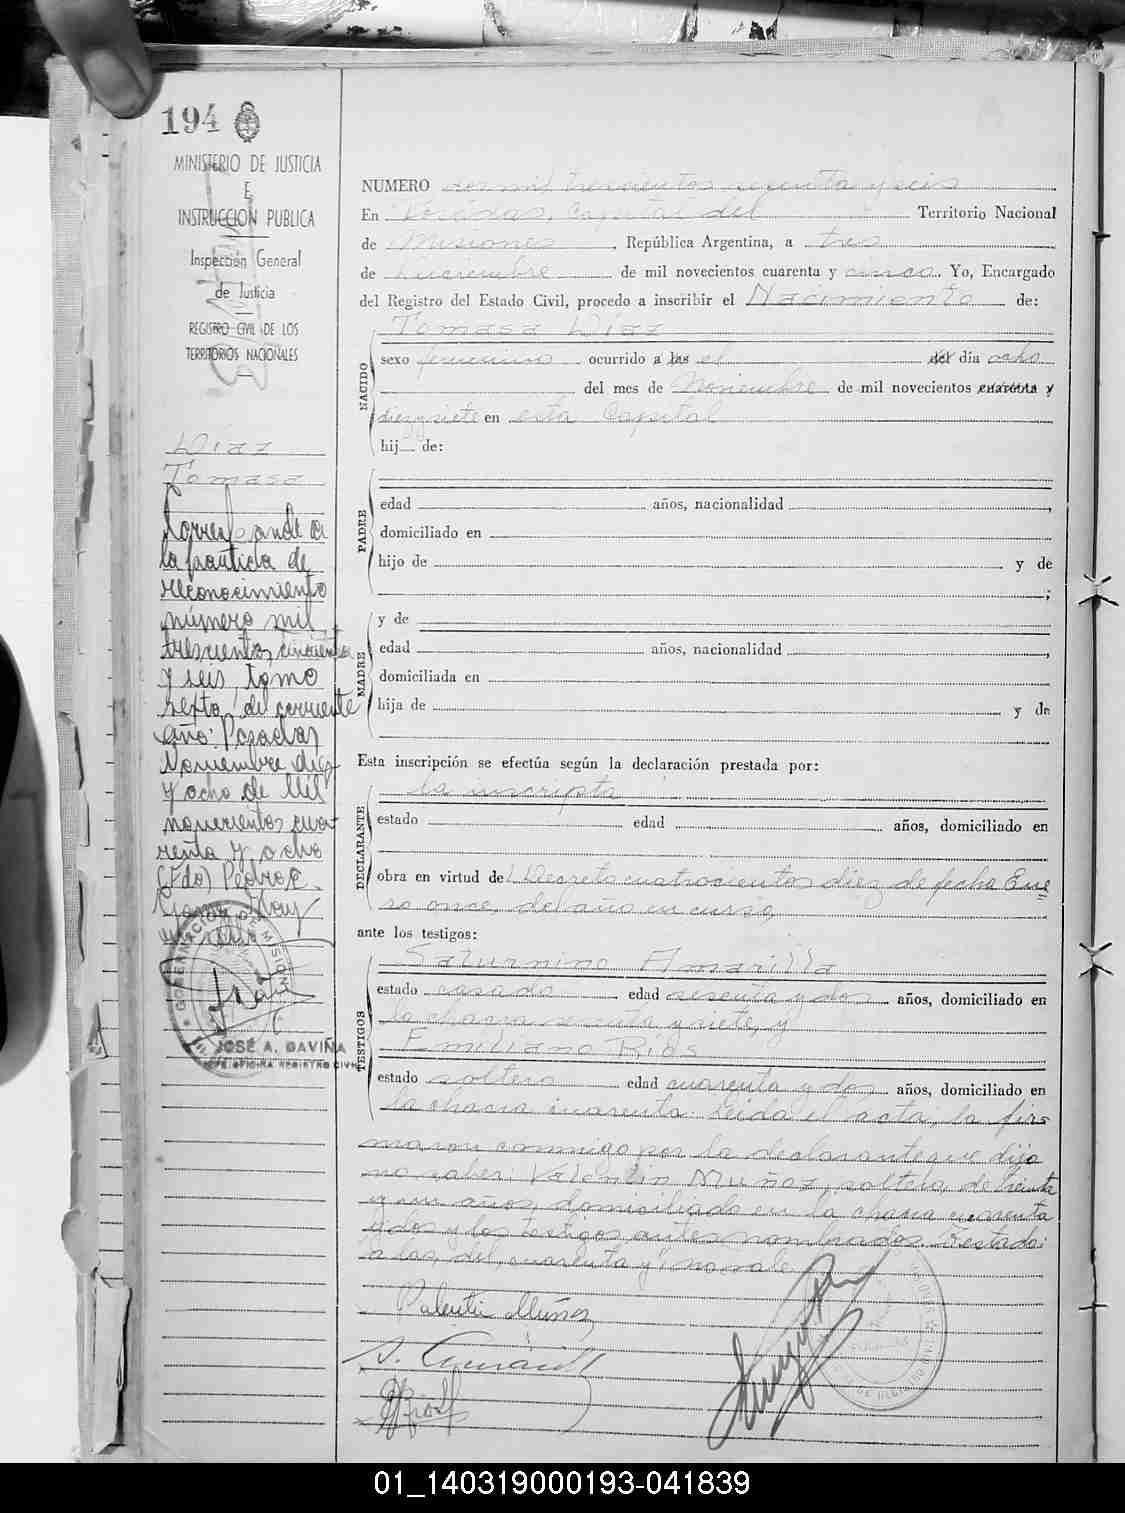 194
MINISTERIO DE JUSTICIA
E
INSTRUCCION PUBLICA
Inspección General
de Justicia
REGISTRO CIVIL DE LOS
TERRITORIOS NACIONALES
Diaz
Tomasa
Corresponde a
la partida de
reconocimiento
número mil
trescientos cincuenta
y seis, tomo
sexto, del corriente
año: Posadas
Noviembre diez
y ocho de Mil
novecientos cua
renta y ocho
(Fdo) Pedro
JOSÉ A. GAVIÑA
JEFE OFICINA REGISTRO CIVIL
NUMERO dos mil trescientos y seis
En Posadas, Capital del Territorio Nacional
de Misiones, República Argentina, a tres
de Diciembre de mil novecientos cuarenta y cinco. Yo, Encargado
del Registro del Estado Civil, procedo a inscribir el Nacimiento de:
NACIDO
Tomasa Diaz
sexo femenino ocurrido a las el del día ocho
del mes de Noviembre de mil novecientos cuarenta y
diez y siete en esta Capital
hij de:
PADRE
edad años, nacionalidad ,
domiciliado en
hijo de y de
;
MADRE
y de
edad años, nacionalidad ,
domiciliada en
hija de y de
Esta inscripción se efectúa según la declaración prestada por:
DECLARANTE
la inscripta
estado edad años, domiciliado en
obra en virtud del Decreto cuatrocientos diez de fecha Ene
ro once, del año en curso,
ante los testigos:
TESTIGOS
Saturnino Amarilla
estado casado edad sesenta y dos años, domiciliado en
la chacra sesenta y siete, y
Emiliano Rios
estado soltero edad cuarenta y dos años, domiciliado en
la chacra cuarenta. Leida el acta, la fir=
maron conmigo por la declarante que dijo
no saber, Valentin Muñoz, soltero, de treinta
y un años, domiciliado en la chacra cuarenta
y dos y los testigos antes nombrados. Testado:
a las, del, cuarenta y", no vale
Valentin Muñoz
01_140319000193-041839